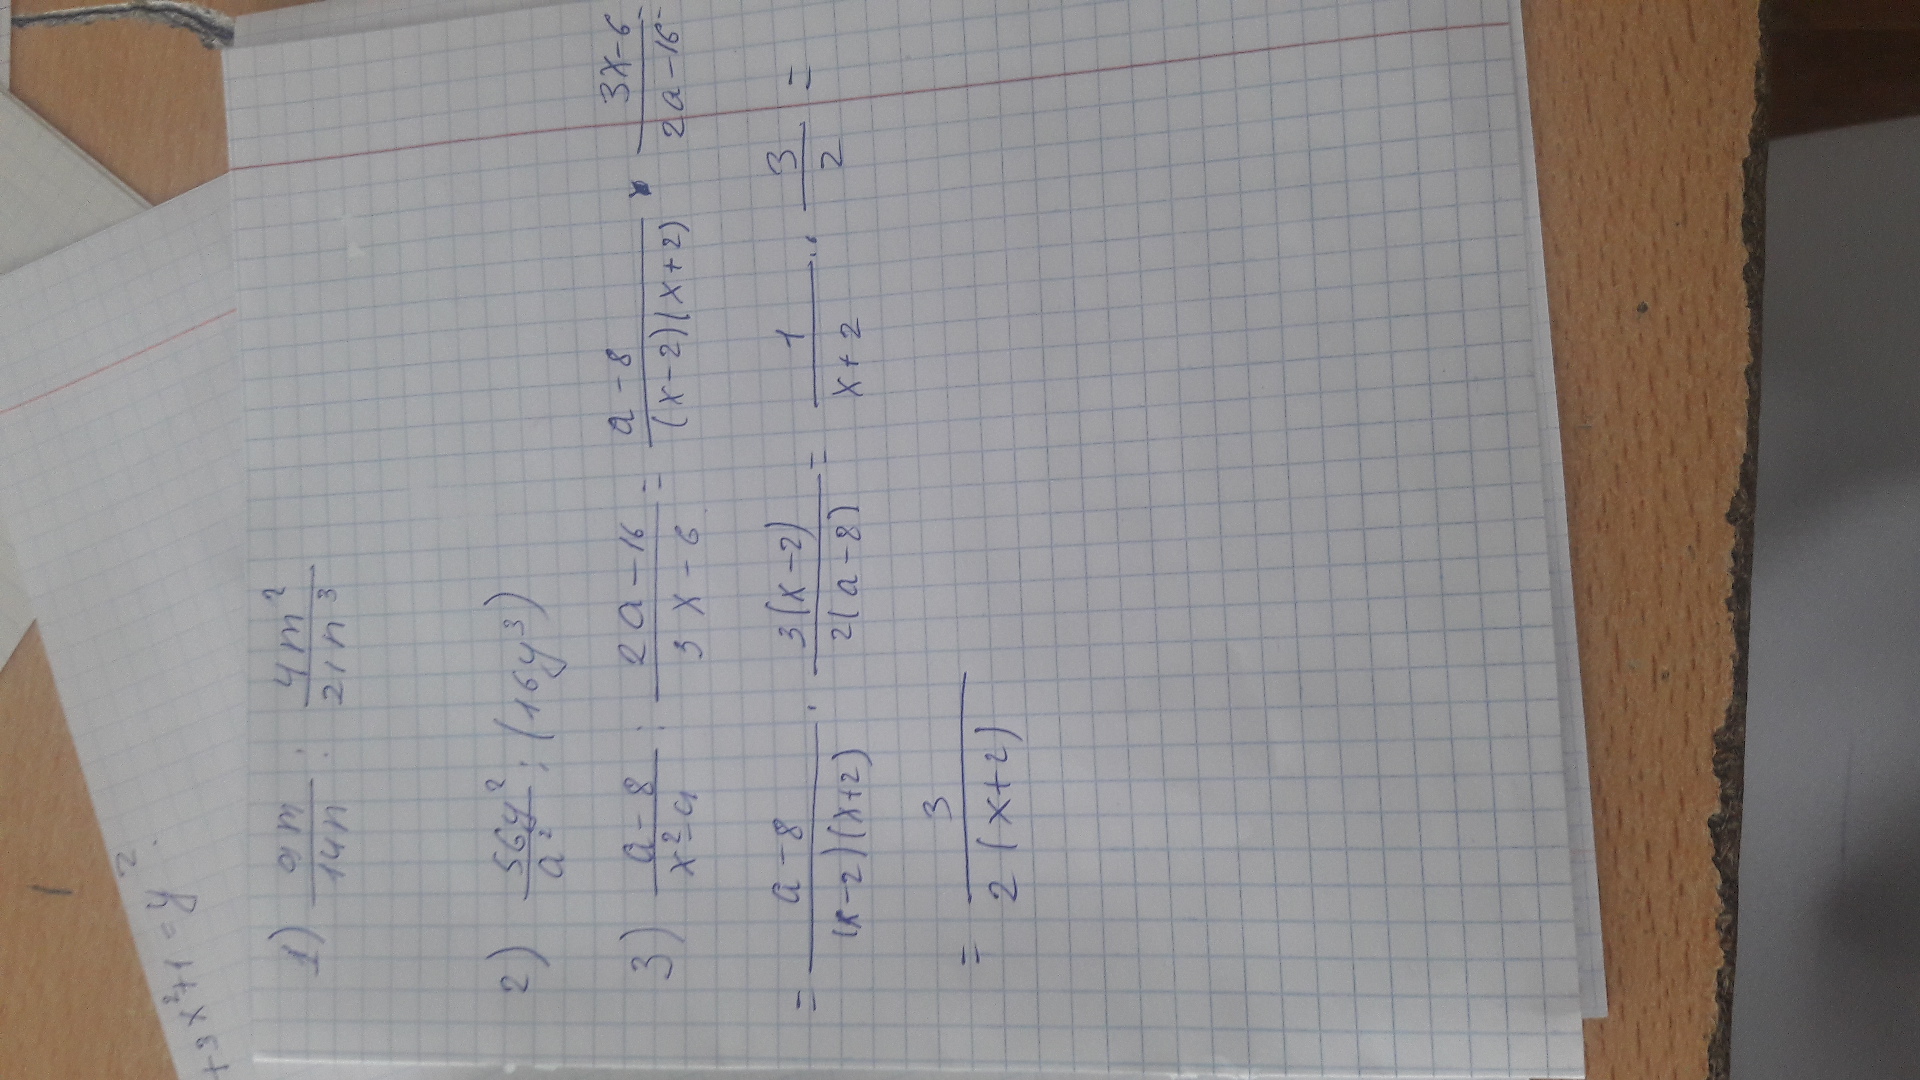 +3x²+1=y².
1) 9m/14n : 4m²/21n³
2) 56y²/a² : (16y³)
3) a-8/x²-4 : 2a-16/3x-6 = a-8/(x-2)(x+2) · 3x-6/2a-16
= a-8/(x-2)(x+2) · 3(x-2)/2(a-8) = 1/x+2 · 3/2 =
= 3/2(x+2)